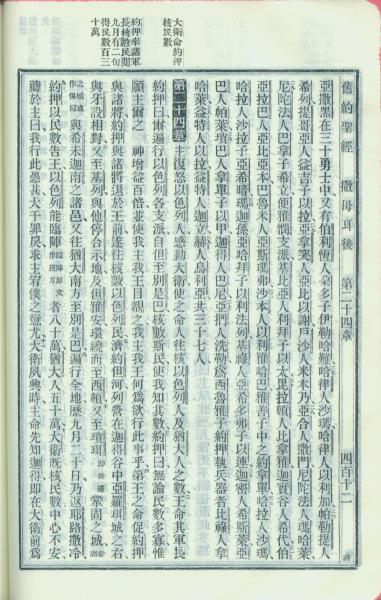 舊約聖經 撒母耳後 第二十四章 四百十二
亞撒黑在三十勇士中又有伯利恆人朶多子伊勒哈難哈律人沙瑪哈律人以利加帕勒提人
希列提哥亞人益吉子以拉亞拿突人亞比以謝戶沙人米本乃亞合人撒們尼陀法人瑪哈萊
尼陀法人巴拿子希立便雅憫支派基比亞人利拜子以太毘拉頓人比拿雅迦實谷人希代伯
亞拉巴人亞比亞本巴魯米人亞斯瑪弗沙本人以利雅哈巴雅善子中之約拿單哈拉人沙瑪
哈拉人沙拉子亞希暗瑪迦孫亞哈拜子以利法列基祿人亞希多弗子以連迦密人希斯萊亞
巴人帕萊瑣巴人拿單子以甲迦得人巴尼亞捫人洗勒為西魯雅子約押執兵器者比祿人拿
哈萊益特人以拉益特人迦立赫人烏利亞共三十七人
大衛命約押
核民數
第二十四章 主復怒以色列人感動大衛使之命人往核以色列人及猶大人之數王命其軍長
約押曰爾遍行以色列各支派自但至別是巴核數斯民使我知其數約押曰無論民數多寡惟
願主爾之神增益百倍並使我主我王目親之我主我王何爲欲行此事乎第王之命促約押
約押率諸軍
長核數民閱
九月有二旬
得民數百三
十萬
與諸將約押與諸將退於王前遂往核數以色列民濟約但河列營在迦得谷中亞羅珥城之右
與牙設相對又至基列與他停合示地及但雅安環繞而至西頓又至瑣珥鞏固之城
與希未迦南之諸邑又往猶大南方至別是巴遍行全地歷九月二十日乃返耶路撒冷
約押以民數告王以色列能臨陣者八十萬猶大人五十萬大衛既核民數中心不安
禱於主曰我行此愚甚大干罪戾求主宥僕之愆尤大衛夙興時主命先知迦得即在大衛前爲